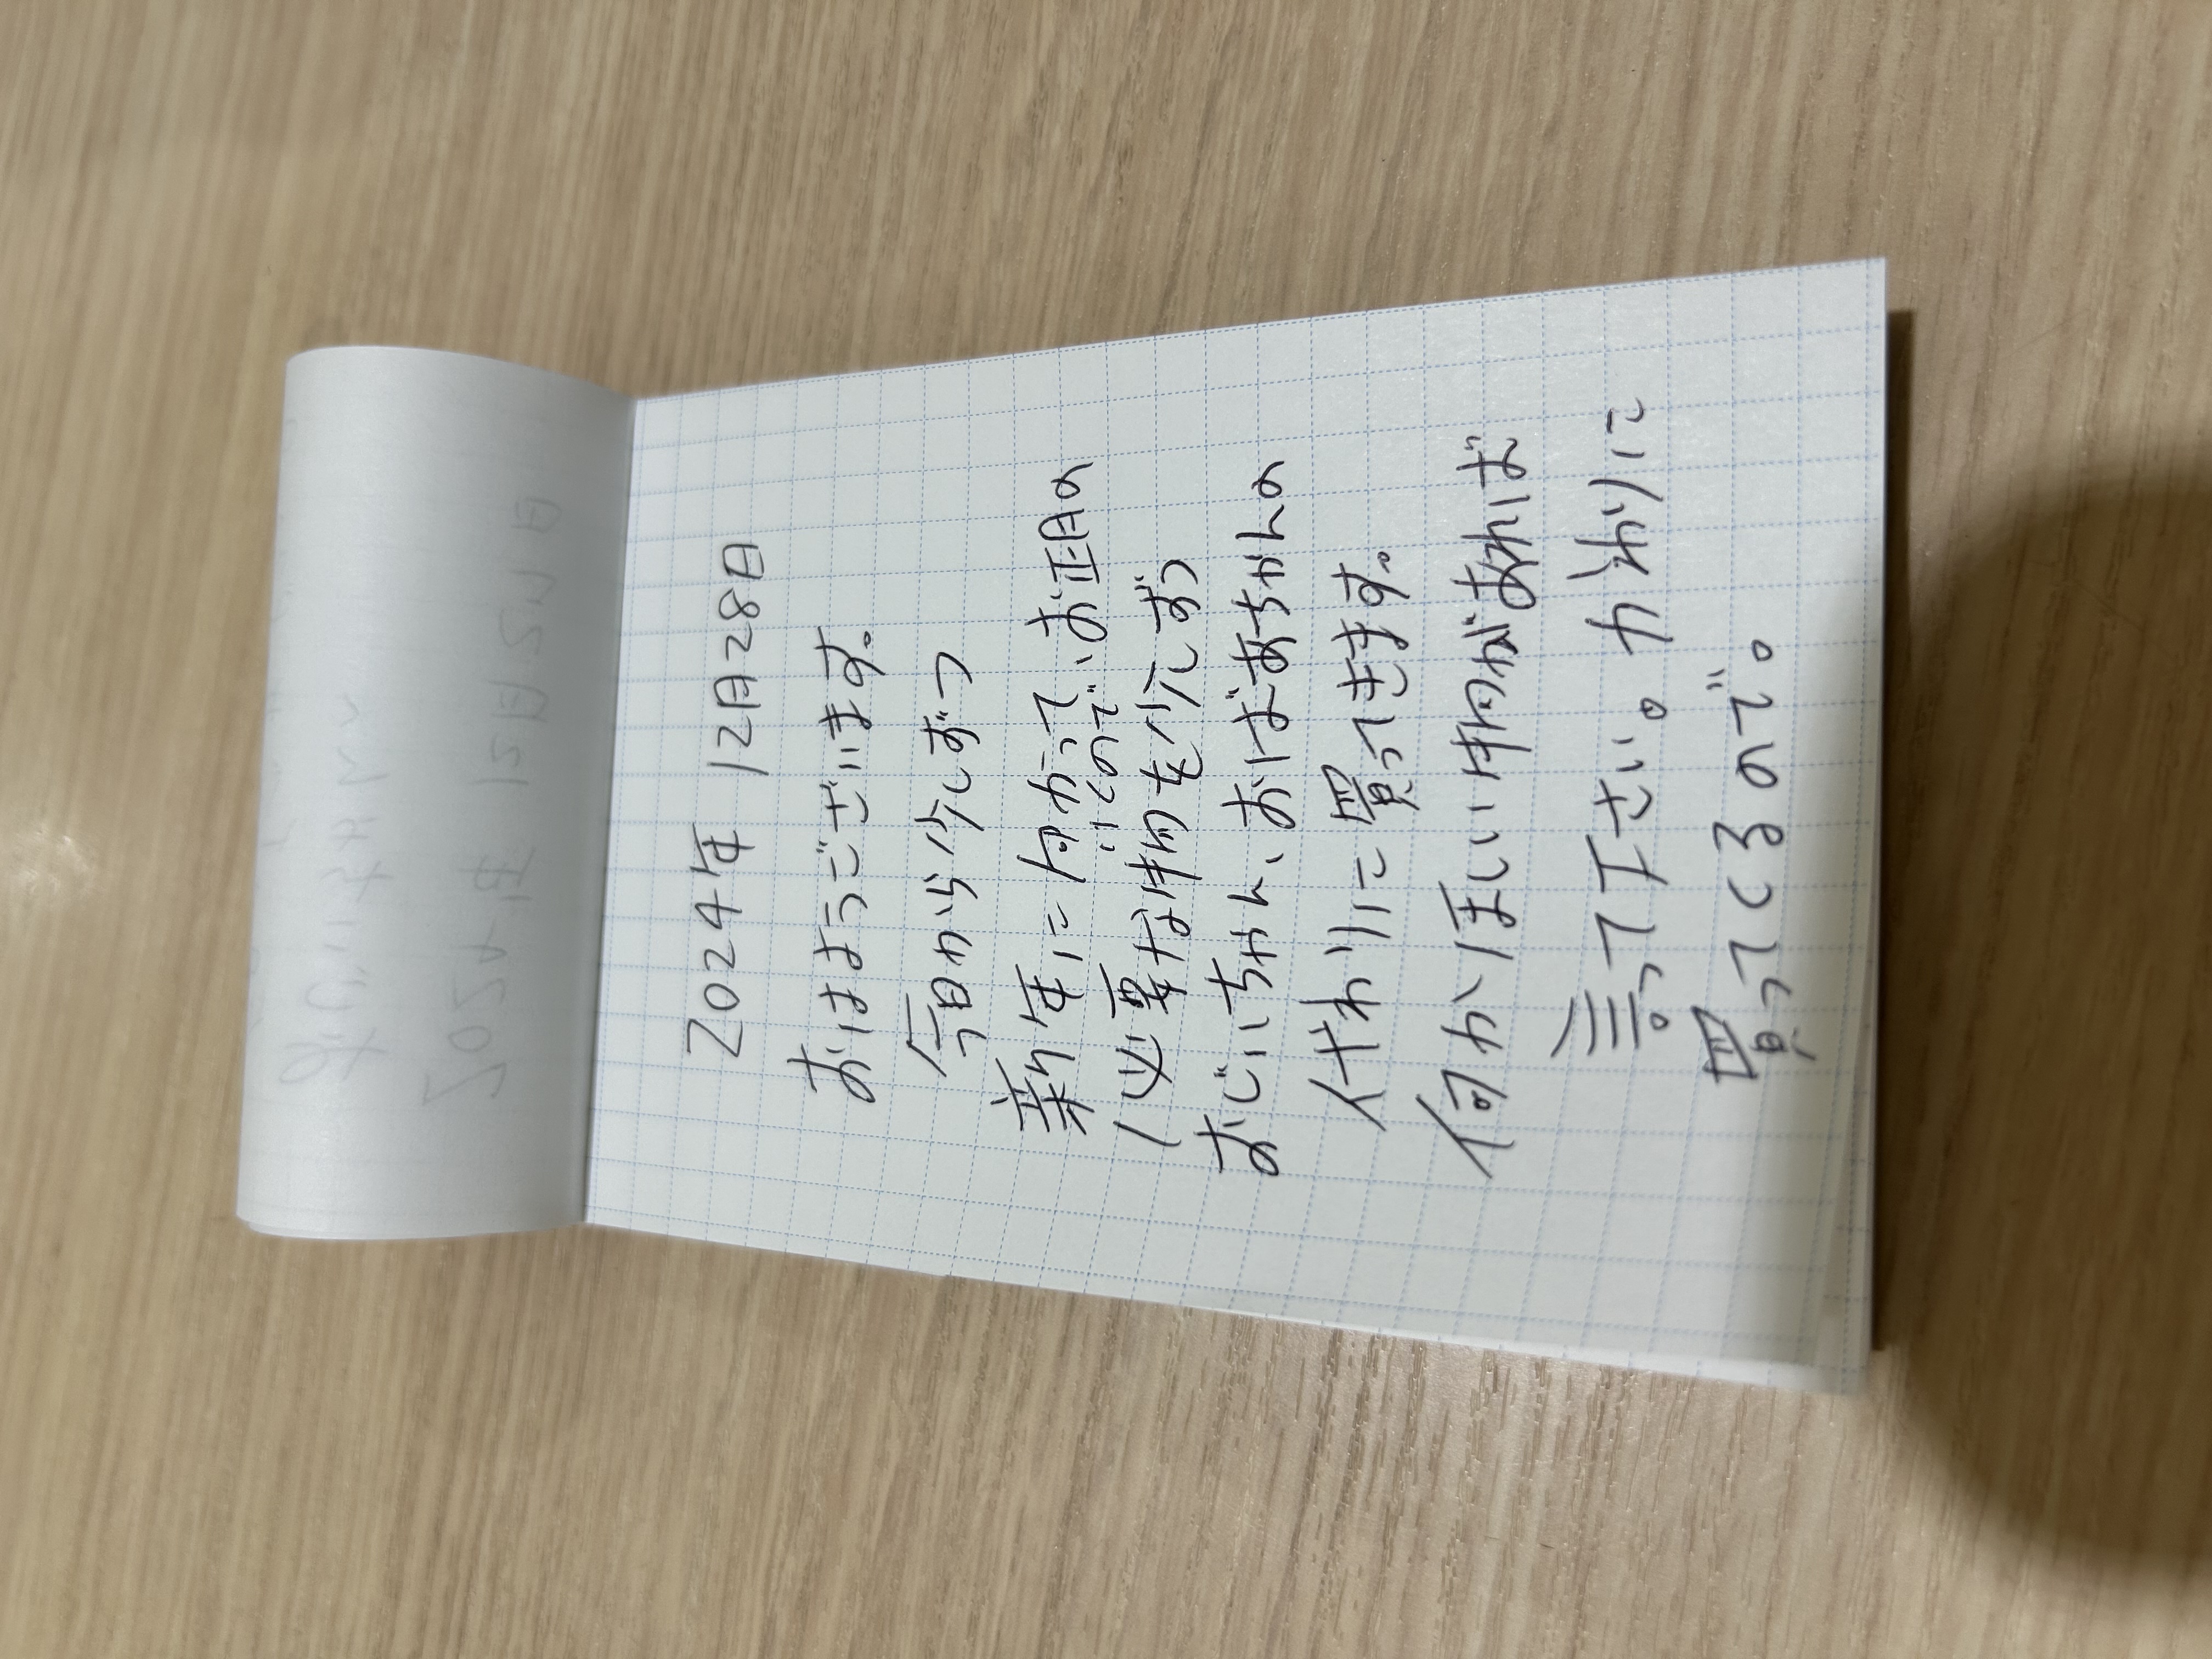 2024年 12月28日
おはようございます。
今日から少しずつ
新年に向かって、お正月の
じどので
必要な物を少しずつ
おじいちゃん、おばあちゃんの
代わりに買ってきます。
何かほしい物があれば
言って下さい。かわりに
買ってくるので。